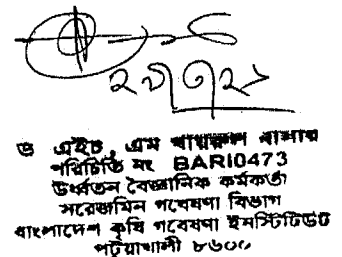 ড এইচ, এম খায়রুল বাসার
পরিচিতি নং BARI0473
উর্ধ্বতন বৈজ্ঞানিক কর্মকর্তা
সরেজমিন গবেষণা বিভাগ
বাংলাদেশ কৃষি গবেষণা ইনস্টিটিউট
পটুয়াখালী ৮৬০০